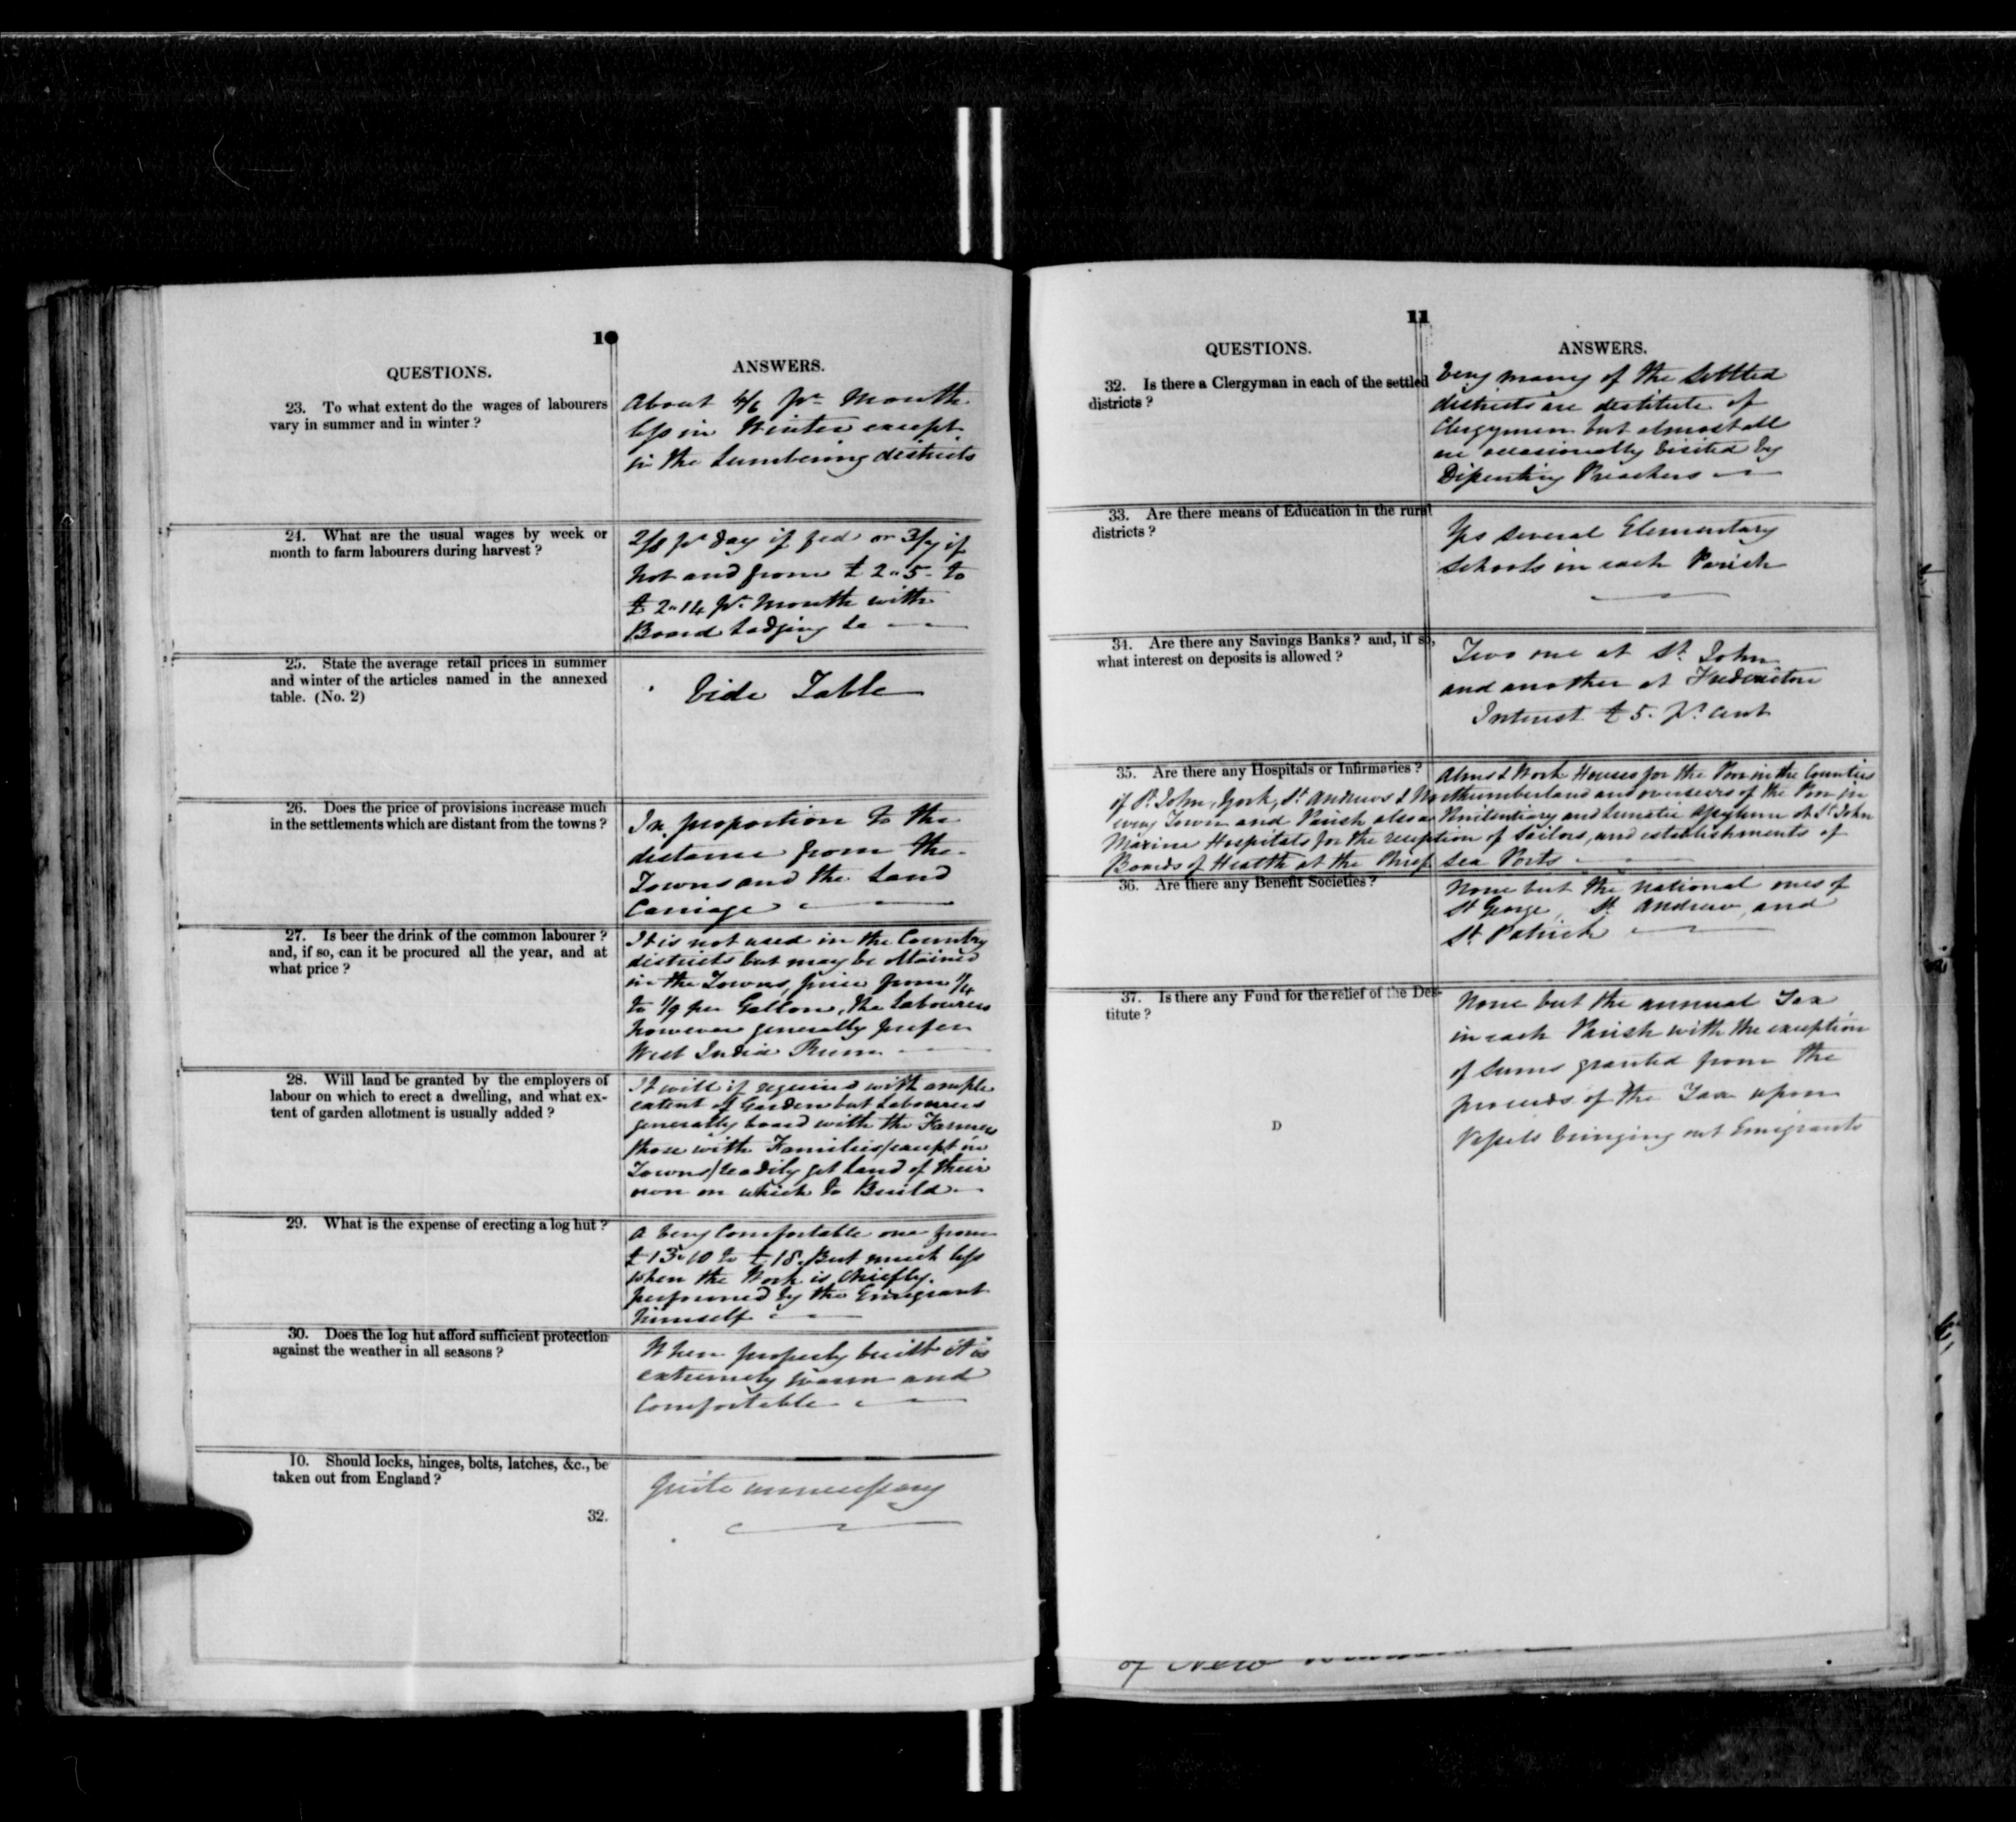 10
QUESTIONS.
ANSWERS.
23. To what extent do the wages of labourers
vary in summer and in winter ?
About 4/6 pr Month
less in Winter except
in the Lumbering districts
24. What are the usual wages by week or
month to farm labourers during harvest ?
pr day if fed or if
not and from £ 2 " 5 - to
£ 2 " 14 pr Month with
Board Lodging &c
25. State the average retail prices in summer
and winter of the articles named in the annexed
table. (No. 2)
Vide Table
26. Does the price of provisions increase much
in the settlements which are distant from the towns ?
In proportion to the
distance from the
Towns and the Land
Carriage
27. Is beer the drink of the common labourer ?
and, if so, can it be procured all the year, and at
what price ?
It is not used in the Country
districts but may be obtained
in the Towns, price from 1/4
to 1/9 per Gallon, the Labourers
however generally prefer
West India Rum
28. Will land be granted by the employers of
labour on which to erect a dwelling, and what ex-
tent of garden allotment is usually added ?
It will if required with ample
extent of Garden but Labourers
generally board with the Farmers
those with Families (except in
Towns) readily get Land of their
own on which to Build
29. What is the expense of erecting a log hut ?
A very Comfortable one from
£ 13 " 10 to £ 18. But much less
when the Work is chiefly
performed by the Emigrant
himself
30. Does the log hut afford sufficient protection
against the weather in all seasons ?
When properly built it is
extremely warm and
Comfortable
10. Should locks, hinges, bolts, latches, &c., be
taken out from England ?
Quite unnecessary
32.
11
QUESTIONS.
ANSWERS.
32. Is there a Clergyman in each of the settled
districts ?
Very many of the settled
districts are destitute of
Clergymen but almost all
are occasionally visited by
Dissenting Preachers
33. Are there means of Education in the rural
districts ?
Yes several Elementary
Schools in each Parish
34. Are there any Savings Banks ? and, if so,
what interest on deposits is allowed ?
Two one at St. John
and another at Fredericton
Interest £ 5. pr. Cent
35. Are there any Hospitals or Infirmaries ?
Alms & Work Houses for the Poor in the Counties
of St. John, York, St. Andrews & Northumberland and overseers of the Poor in
every Town and Parish also a Penitentiary and Lunatic Asylum at St. John
Marine Hospitals for the reception of Sailors, and establishments of
Boards of Health at the Sea Ports
36. Are there any Benefit Societies ?
None but the National ones of
St George, St. Andrew, and
St. Patrick
37. Is there any Fund for the relief of the Des-
titute ?
None but the annual Tax
in each Parish with the exception
of Sums granted from the
proceeds of the Tax upon
Vessels bringing out Emigrants
D
of New